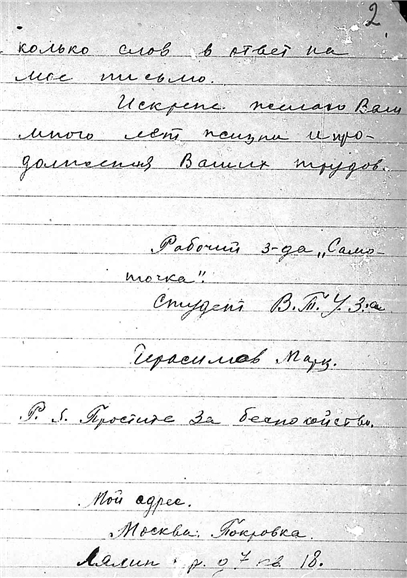 2
колько слов в ответ на
мое письмо.
Искрене желаю Вам
много лет жизни и про-
должения Ваших трудов.
Рабочий з-да „Само-
точка".
Студент В.Т.У.З.а
Герасимов Марц.
P.S. Простите за беспокойство.
Мой адрес.
Москва. Покровка.
Лялин п. д 7 кв 18.